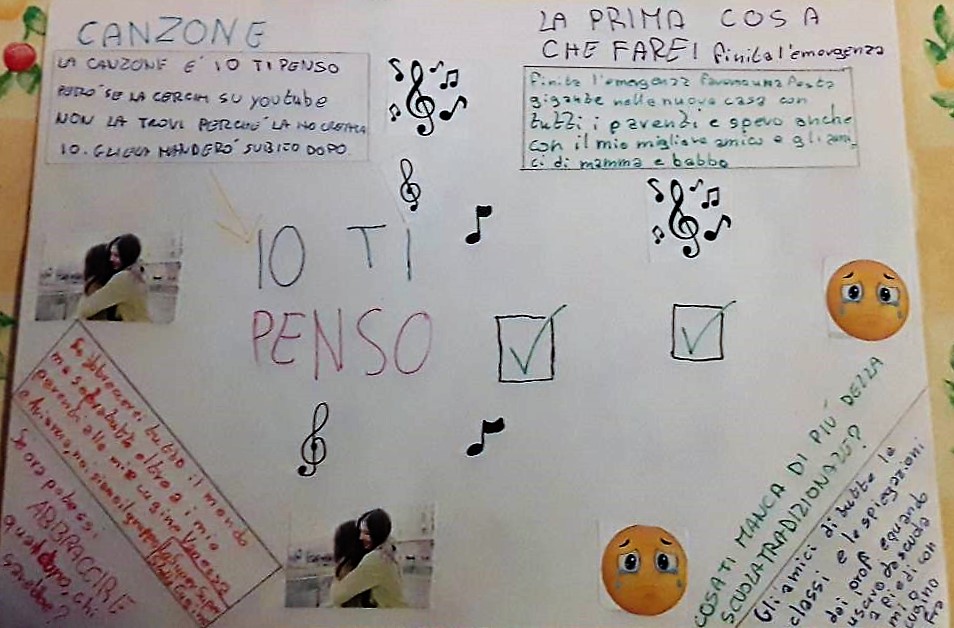 CANZONE
LA CANZONE E' IO TI PENSO
PERO' SE LA CERCHI SU youtube
NON LA TROVI PERCHE' LA HO CREATA
IO. GLIELA MANDERO' SUBITO DOPO.
LA PRIMA COSA
CHE FAREI finita l'emergenza
finita l'emergenza faremo una festa
gigante nella nuova casa con
tutti i parenti e spero anche
con il mio migliore amico e gli ami
ci di mamma e babbo
IO TI
PENSO
Io abbraccerei tutto il mondo
ma soprattutto oltre a i miei
parenti alle mie cugine Vanessa
e Arianna, noi siamo il gruppo
Se ora potessi
ABBRACCIARE
qualcuno, chi
sarebbe?
COSA TI MANCA DI PIÚ DELLA
SCUOLA TRADIZIONALE?
Gli amici di tutte le
classi e le spiegazioni
dei prof e quando
uscivo da scuola
a piedi con
mio
cugino